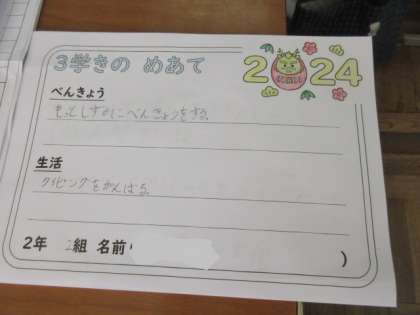 3学きの めあて
2024
べんきょう
もっとしずかにべんきょうをする。
生活
タイピングをがんばる。
2年 2組 名前( )